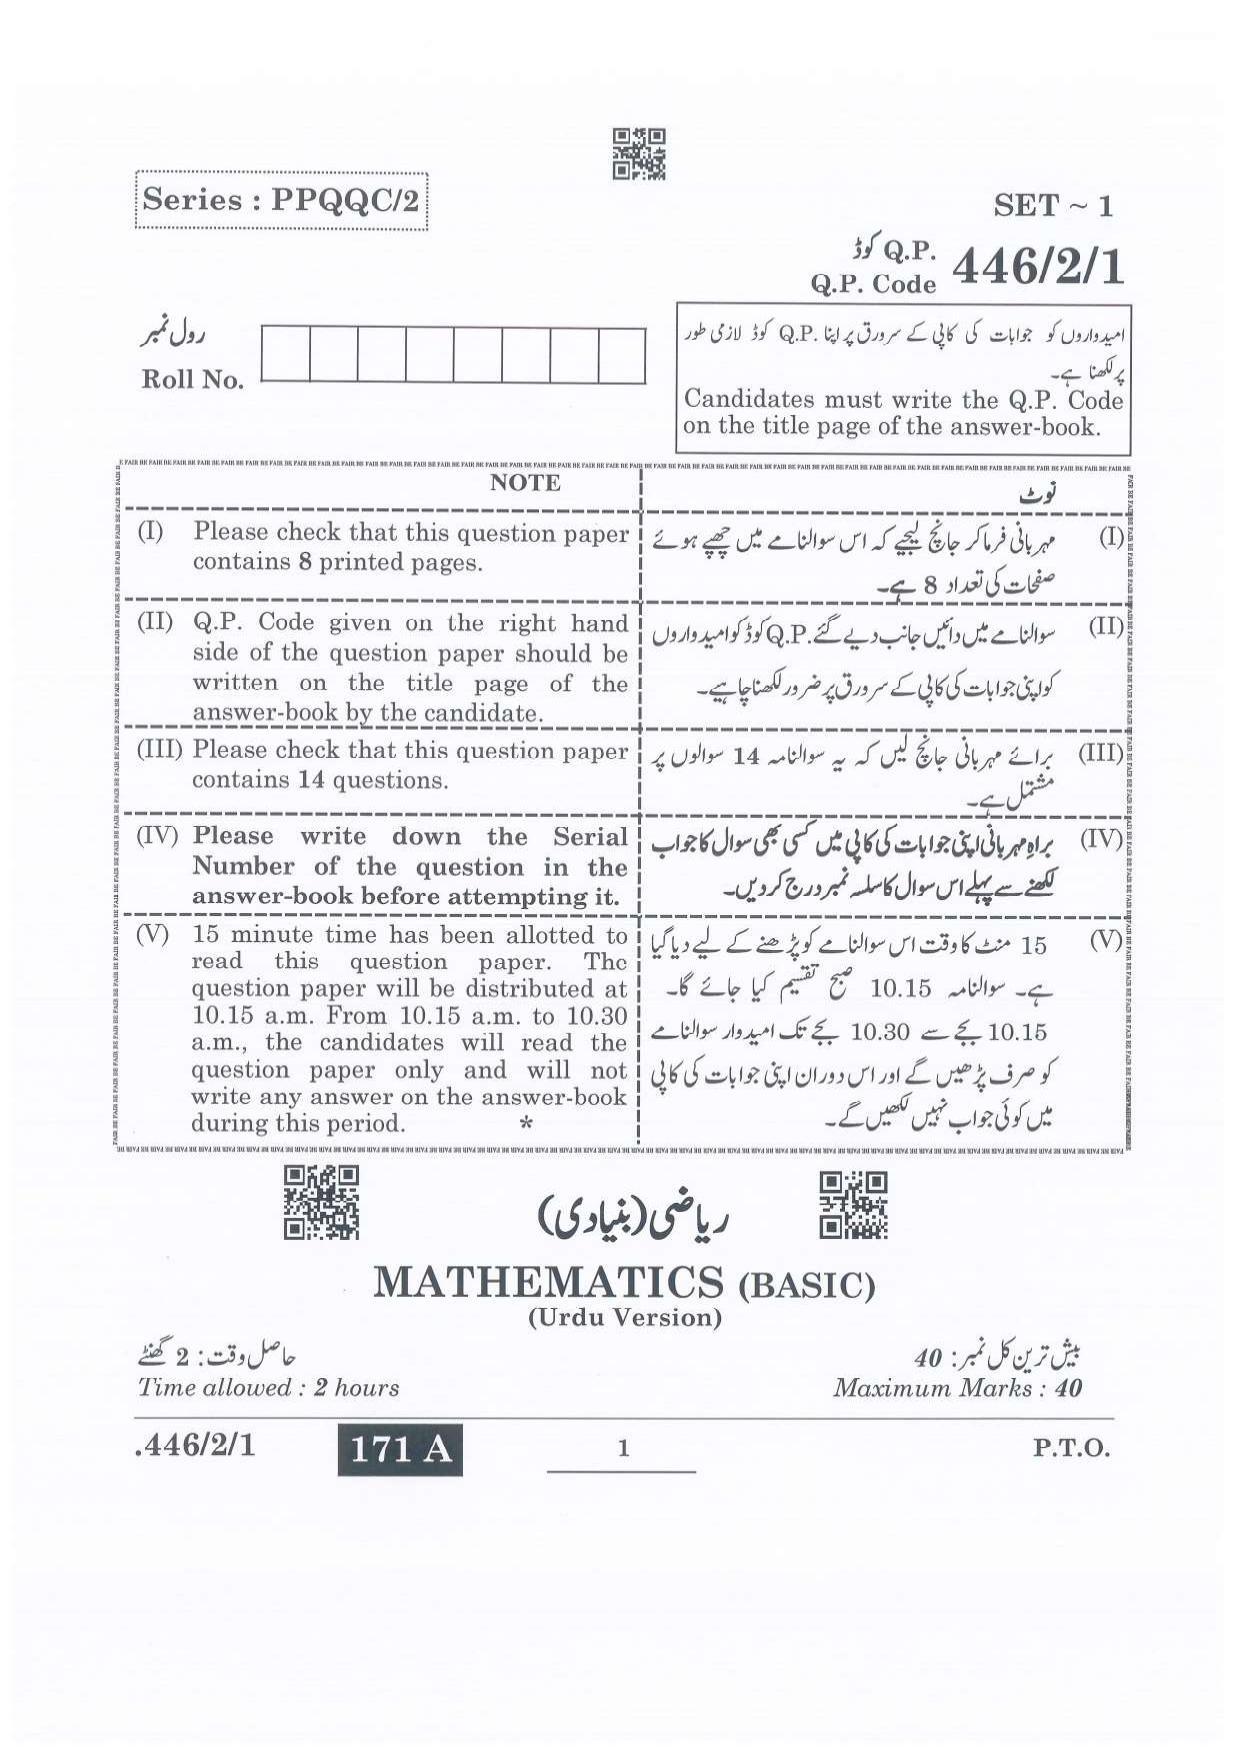 Series : PPQQC/2
SET ~ 1
Q.P. کوڈ
Q.P. Code 446/2/1
رول نمبر
Roll No.
امیدواروں کو جوابات کی کاپی کے سرورق پر اپنا Q.P. کوڈ لازمی طور
پر لکھنا ہے۔
Candidates must write the Q.P. Code
on the title page of the answer-book.
NOTE
(I) Please check that this question paper
contains 8 printed pages.
(II) Q.P. Code given on the right hand
side of the question paper should be
written on the title page of the
answer-book by the candidate.
(III) Please check that this question paper
contains 14 questions.
(IV) Please write down the Serial
Number of the question in the
answer-book before attempting it.
(V) 15 minute time has been allotted to
read this question paper. The
question paper will be distributed at
10.15 a.m. From 10.15 a.m. to 10.30
a.m., the candidates will read the
question paper only and will not
write any answer on the answer-book
during this period. *
نوٹ
(I) مہربانی فرما کر جانچ لیجیے کہ اس سوالنامے میں چھپے ہوئے
صفحات کی تعداد 8 ہے۔
(II) سوالنامے میں دائیں جانب دیے گئے Q.P. کوڈ کو امیدواروں
کو اپنی جوابات کی کاپی کے سرورق پر ضرور لکھنا چاہیے۔
(III) برائے مہربانی جانچ لیں کہ یہ سوالنامہ 14 سوالوں پر
مشتمل ہے۔
(IV) براہِ مہربانی اپنی جوابات کی کاپی میں کسی بھی سوال کا جواب
لکھنے سے پہلے اس سوال کا سلسلہ نمبر درج کر دیں۔
(V) 15 منٹ کا وقت اس سوالنامے کو پڑھنے کے لیے دیا گیا
ہے۔ سوالنامہ 10.15 صبح تقسیم کیا جائے گا۔
10.15 بجے سے 10.30 بجے تک امیدوار سوالنامے
کو صرف پڑھیں گے اور اس دوران اپنی جوابات کی کاپی
میں کوئی جواب نہیں لکھیں گے۔
ریاضی (بنیادی)
MATHEMATICS (BASIC)
(Urdu Version)
حاصل وقت: 2 گھنٹے
بیش ترین کل نمبر: 40
Time allowed : 2 hours
Maximum Marks : 40
.446/2/1
171 A
1
P.T.O.